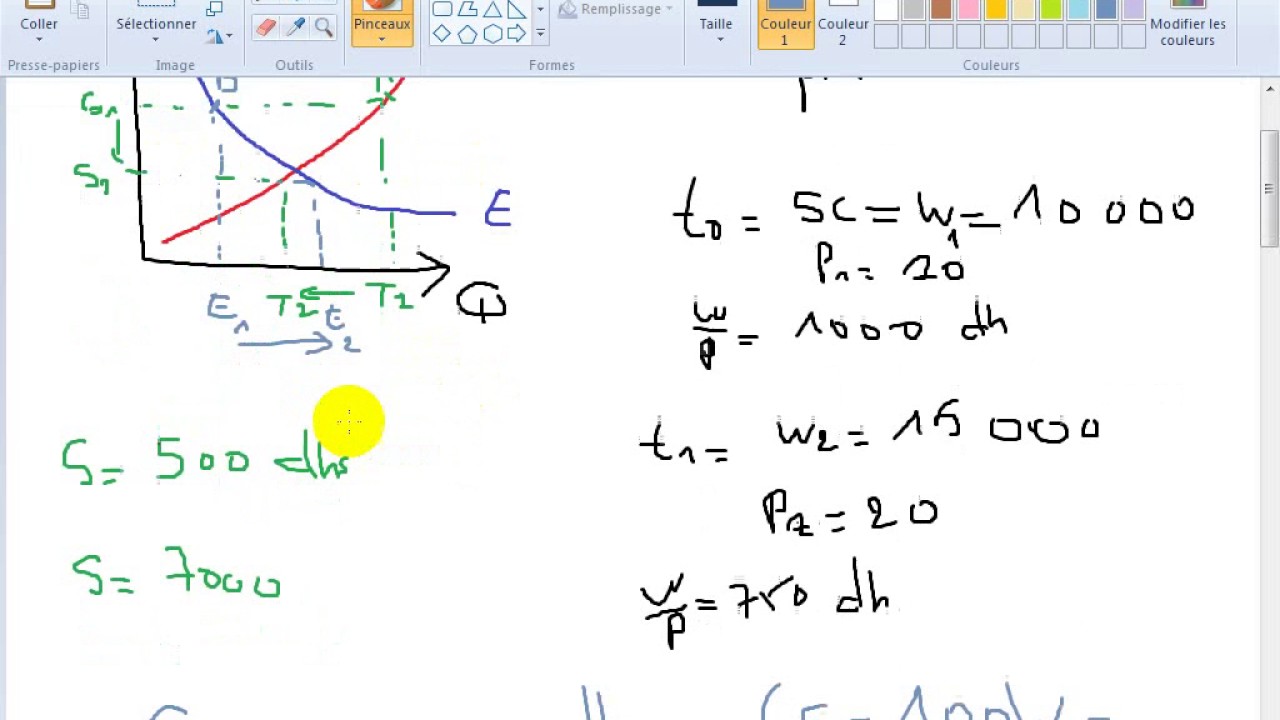 Coller
Sélectionner
Pinceaux
Remplissage
Taille
Couleur 1
Couleur 2
Modifier les couleurs
Presse-papiers
Image
Outils
Formes
Couleurs
E
E1
T2
T2
t2
Q
S = 500 dhs
S = 7000
t0 = SC = W1 = 10 000
P1 = 10
W/P = 1000 dh
t1 = W2 = 15 000
P2 = 20
W/P = 750 dh